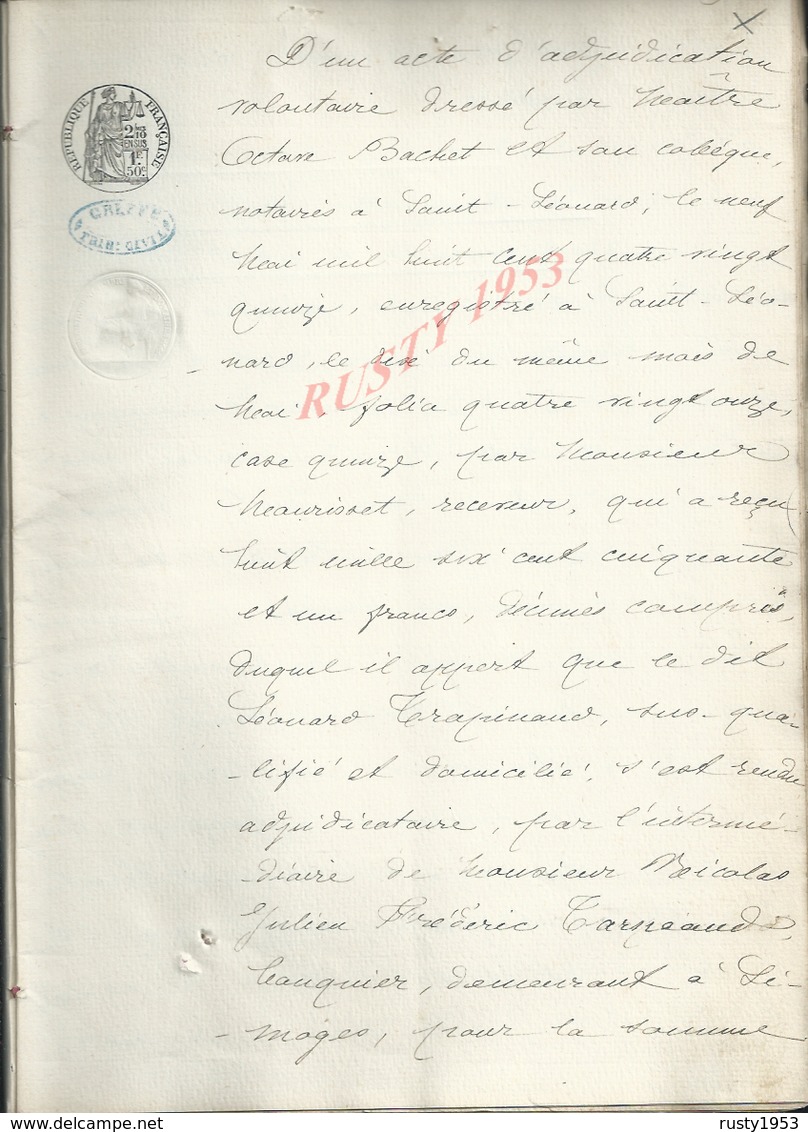 D'un acte d'adjudication
volontaire dressé par Maître
Octave Bachet et son collègue,
notaires à Saint-Léonard, le neuf
Mai mil huit cent quatre vingt
quinze, enregistré à Saint-Léo-
nard, le dix du même mois de
Mai, folio quatre vingt onze,
case quinze, par Monsieur
Meurisset, receveur, qui a reçu
huit mille six cent cinquante
et un francs, décimes compris,
duquel il appert que le dit
Léonard Trapinaud, sus-qua-
-lifié et domicilié, s'est rendu
adjudicataire, par l'intermé-
-diaire de Monsieur Nicolas
Julien Frédéric Tarneaud,
banquier, demeurant à Li-
-moges, pour la somme
RÉPUBLIQUE FRANÇAISE
2/10
EN SUS
1F.
50c.
GREFFE
TRIB: CIVIL
RUSTY 1953
delcampe.net
rusty1953